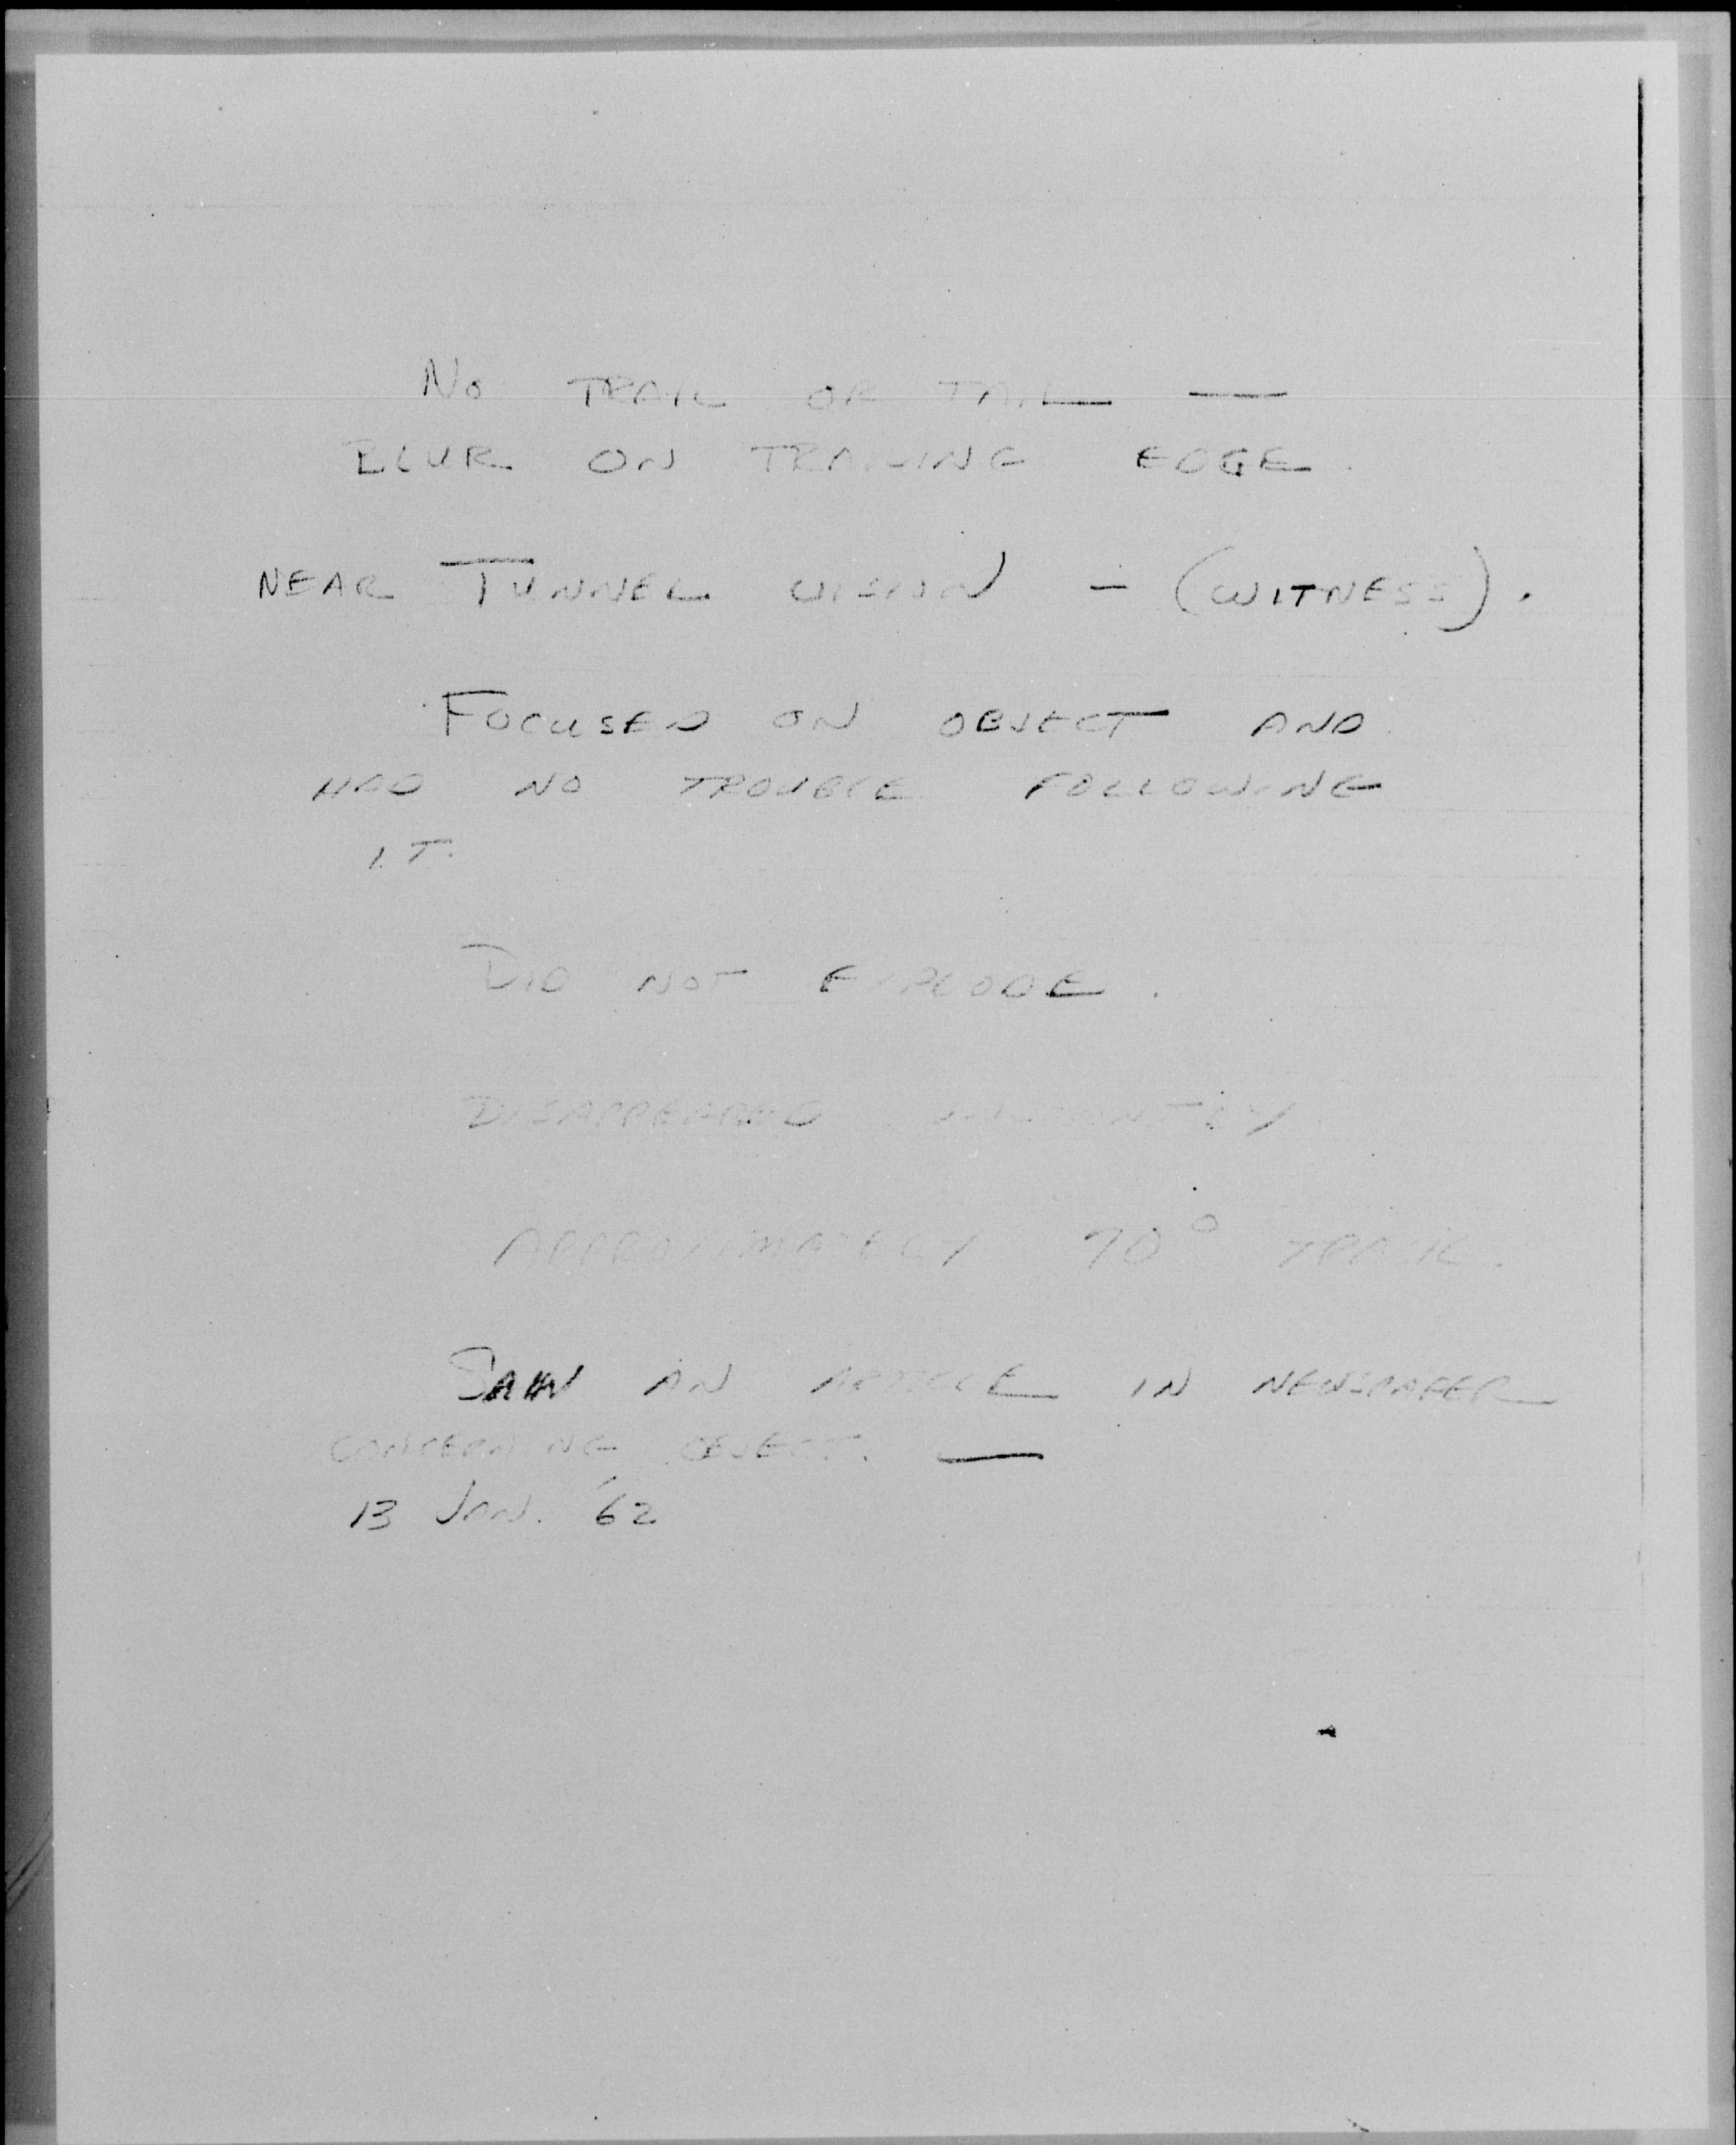 NO TRAIL OR TAIL —
BLUR ON TRAILING EDGE.
NEAR TUNNEL VISION – (WITNESS).
FOCUSED ON OBJECT AND
HAD NO TROUBLE FOLLOWING
IT.
DID NOT EXPLODE.
DISAPPEARED
APPROXIMATELY 70° TRACK.
SAW AN ARTICLE IN NEWSPAPER
CONCERNING OBJECT. —
13 JAN. '62